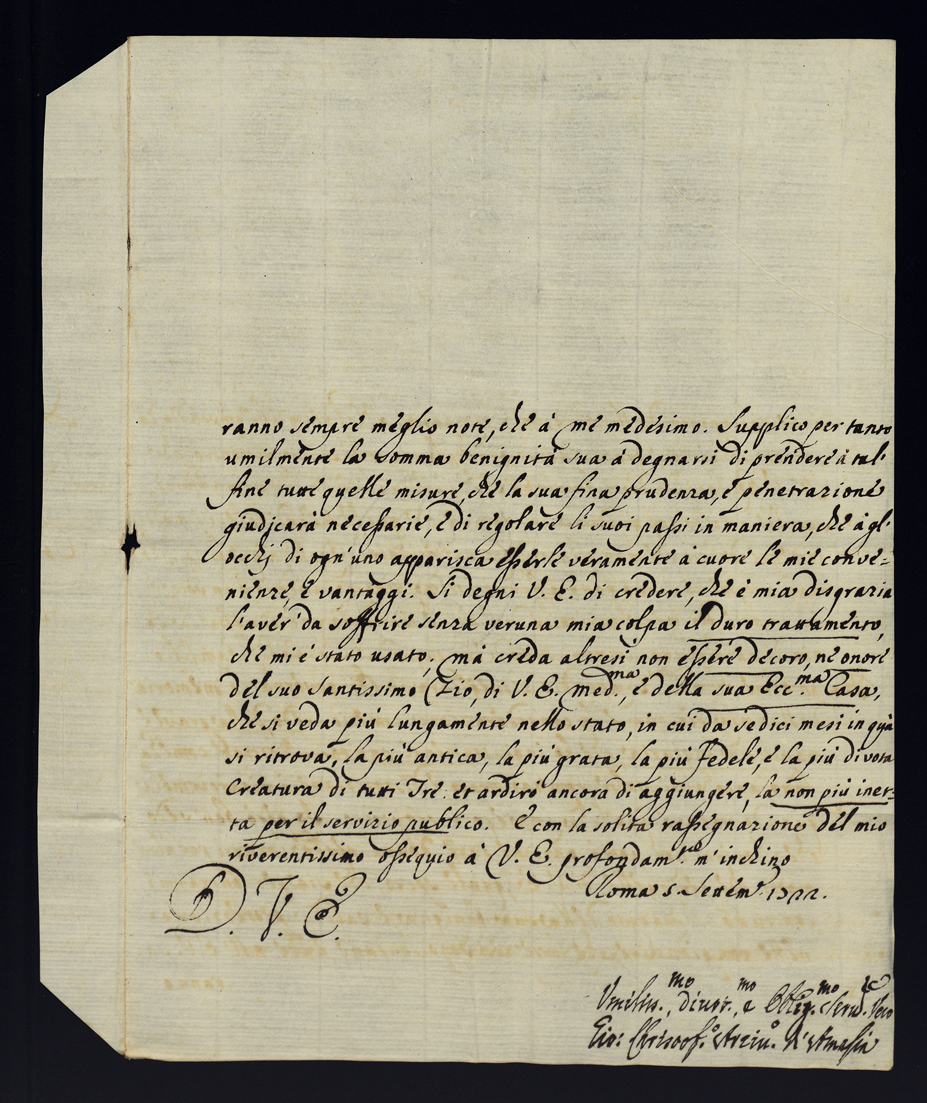 ranno sempre meglio note, che à me medesimo. Supplico per tanto
umilmente la somma benignità sua à degnarsi di prendere à tal'
fine tutte quelle misure, che la sua fina prudenza, e penetrazione
giudicarà necessarie, e di regolare li suoi passi in maniera, che àgl'
occhj di ogn'uno apparisca esserle veramente à cuore le mie conve-
nienze, e vantaggi. Si degni V. E. di credere, che è mia disgrazia
l'aver' da soffrire senza veruna mia colpa il duro trattamento,
che mi è stato usato; mà creda altresì non essere decoro, ne onore
del suo Santissimo Zio, di V. E. med.ma, e della sua Ecc.ma Casa,
che si veda più lungamente nello stato, in cui da sedici mesi in quà
si ritrova, la più antica, la più grata, la più fedele, e la più divota
Creatura di tutti Tre. et ardirò ancora di aggiungere, la non più inet-
ta per il servizio publico. E con la solita rassegnazione del mio
riverentissimo ossequio à V. E. profondam.te m'inchino
Roma 5. Settem.e 1722.
D. V. E.
Vmiliss.mo, diuot.mo, e Obblig.mo Seru.re Vero
Gio: Christof.o Arciu.o d'Amasia